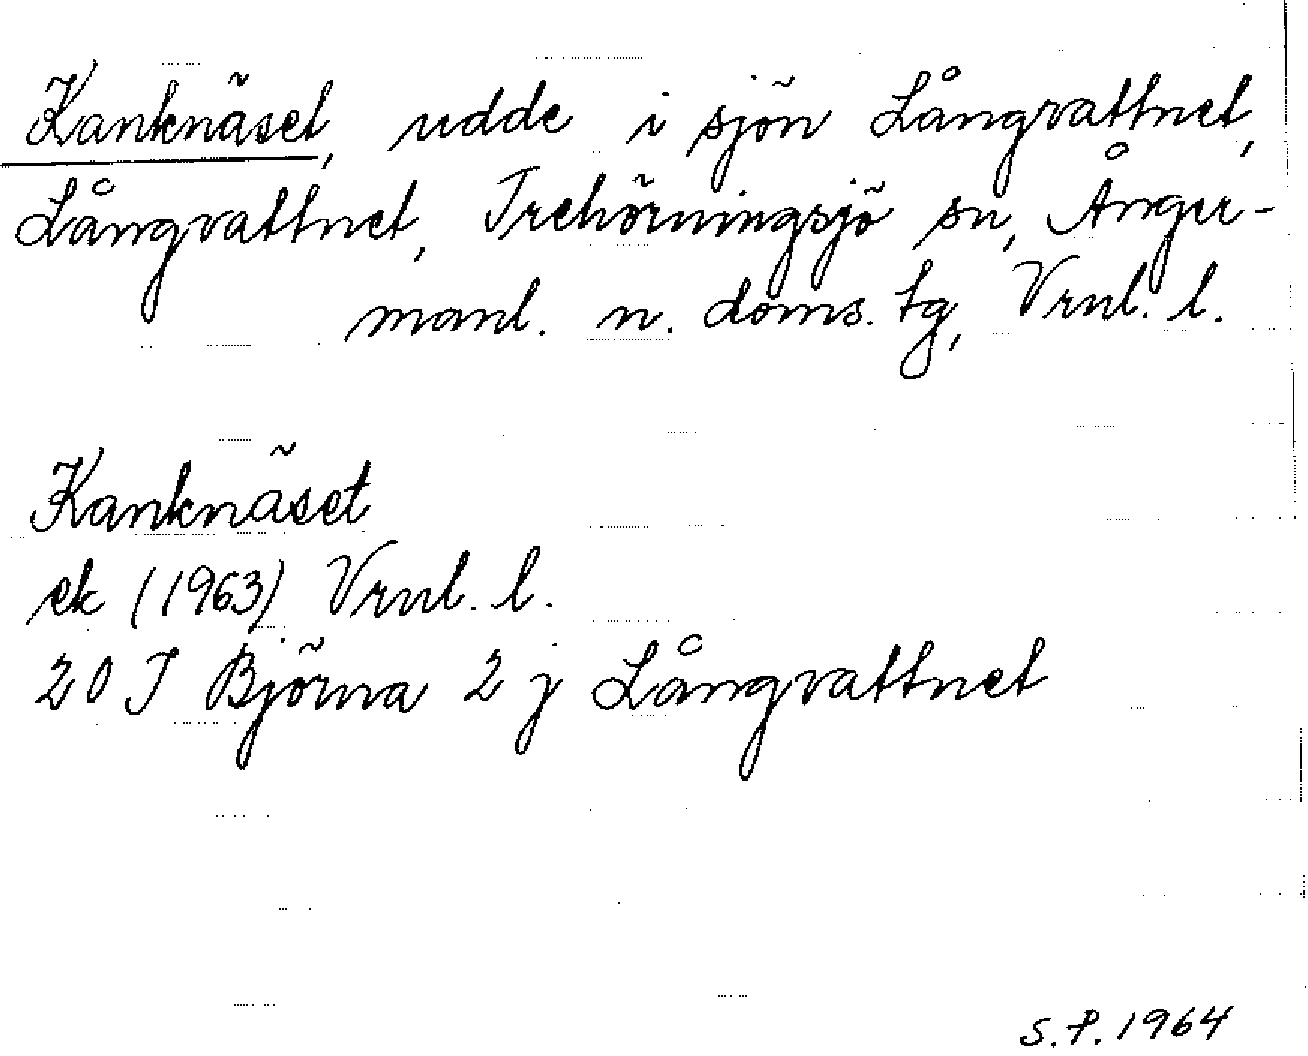 Kanknäset, udde i sjön Långvattnet,
Långvattnet, Trehörningsjö sn, Ånger-
manl. n. doms. tg, Vrnl. l.
Kanknäset
ek (1963) Vrnl. l.
20 J Björna 2 j Långvattnet
S.P. 1964